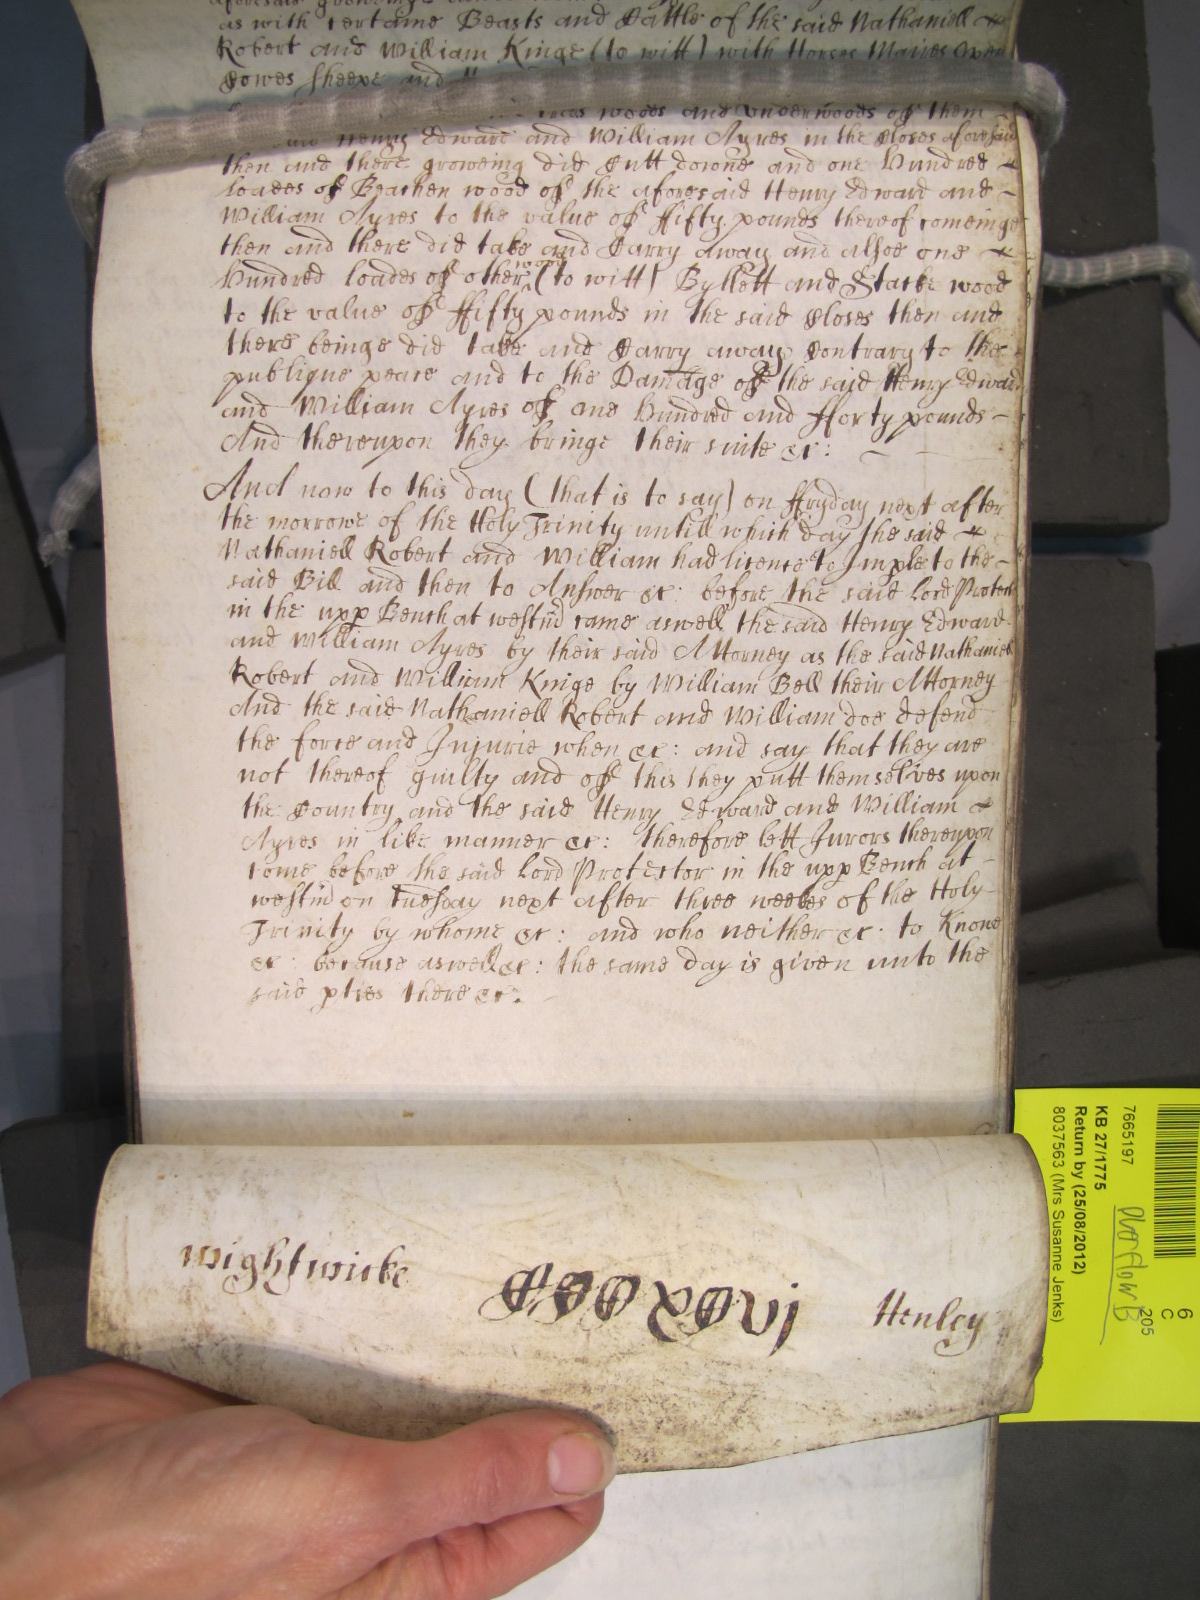 as with certaine Beasts and Cattle of the said Nathaniell
Robert and William Kinge (to witt) with Horses Mares Oxen
Cowes sheepe and
woods and underwoods of them
Henry Edward and William Ayres in the Closes aforesaid
then and there groweing did Cutt downe and one Hundred
loades of Brachen wood of the aforesaid Henry Edward and
William Ayres to the value of ffifty pounds thereof comeinge
then and there did take and Carry away and alsoe one
Hundred loades of other wood (to witt) Byllett and Stacke wood
to the value of ffifty pounds in the said Closes then and
there beinge did take and Carry away Contrary to the
publique peace and to the Damage of the said Henry Edward
and William Ayres of one Hundred and fforty pounds
And thereupon they bringe their suite &c:
And now to this day (that is to say) on ffryday next after
the morrowe of the Holy Trinity untill which day the said
Nathaniell Robert and William had licence to Imple to the
said Bill and then to Answer &c: before the said Lord Protector
in the upp Bench at westm̃ came aswell the said Henry Edward
and William Ayres by their said Attorney as the said Nathaniell
Robert and William Kinge by William Bell their Attorney
And the said Nathaniell Robert and William doe defend
the force and Injurie when &c: and say that they are
not thereof guilty and of this they putt themselves upon
the Country and the said Henry Edward and William
Ayres in like manner &c: therefore lett Jurors thereupon
come before the said Lord Protector in the upp Bench at
westm̃ on Tuesday next after three weekes of the Holy
Trinity by whome &c: and who neither &c: to Knowe
&c: because aswell &c: the same day is given unto the
said pties there &c:
Wightwicke CCCCXCvj Henley
6
C
205
7665197
KB 27/1775
Return by (25/08/2012)
8037563 (Mrs Susanne Jenks)
Overflow B